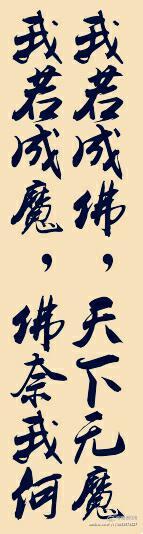 我若成佛，天下无魔
我若成魔，佛奈我何